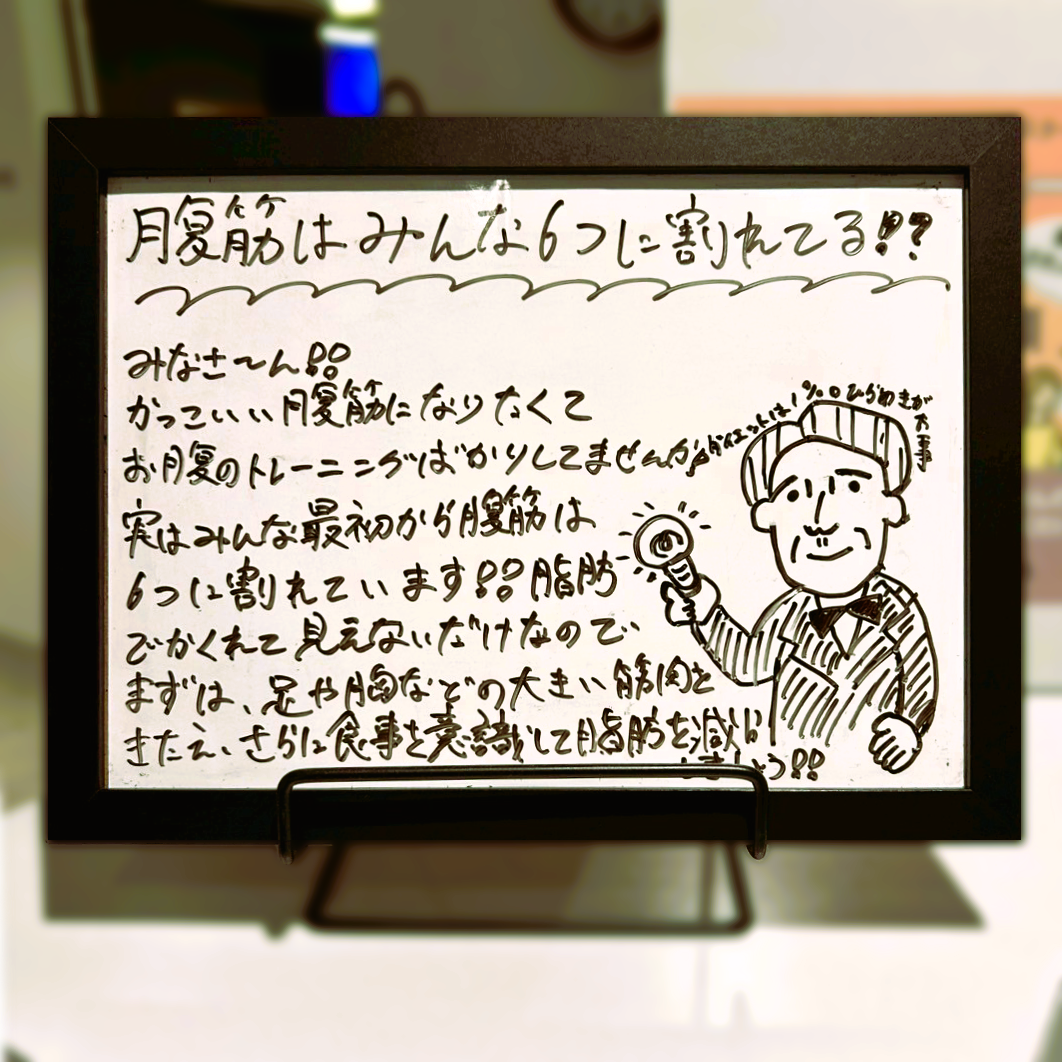 腹筋はみんな6つに割れてる!??
みなさ〜ん!!
かっこいい腹筋になりたくて
お腹のトレーニングばかりしてませんか?
実はみんな最初から腹筋は
6つに割れています!!脂肪
でかくれて見えないだけなので
まずは、足や胸などの大きい筋肉を
きたえ、さらに食事を意識して脂肪を減ら
しましょう!!
ダイエットは1%のひらめきが
大事